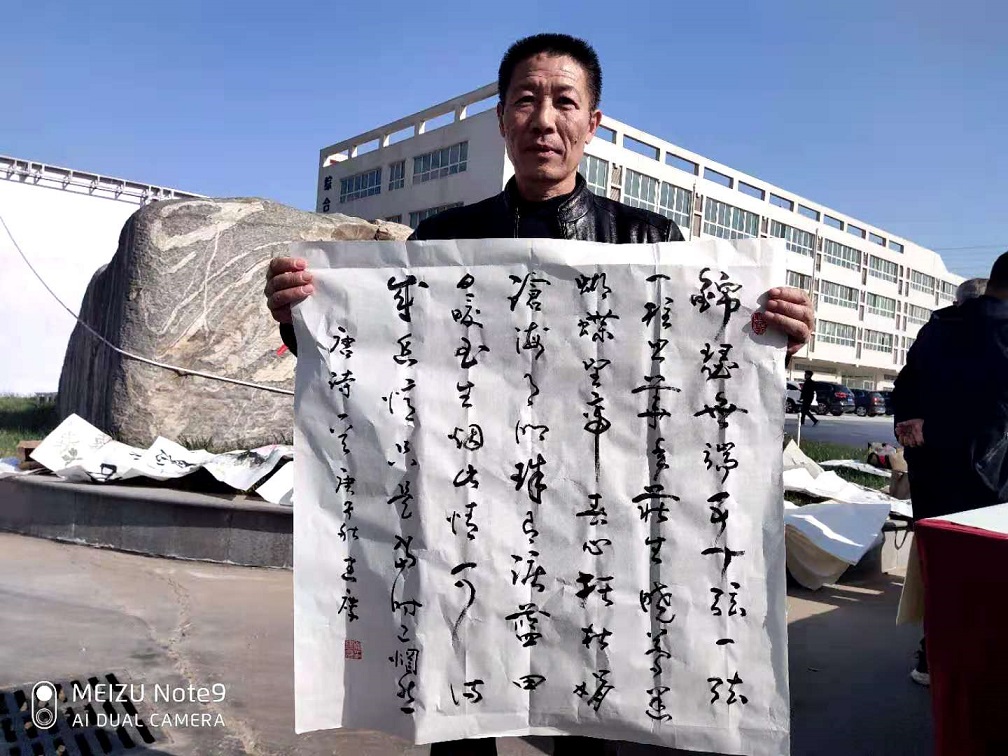 錦瑟無端五十弦一弦
一柱思華年莊生曉夢迷
蝴蝶望帝春心托杜鵑
滄海月明珠有淚藍田
日暖玉生烟此情可待
成追憶只是當時已惘然
唐诗一首庚子秋
综合
MEIZU Note9
AI DUAL CAMERA